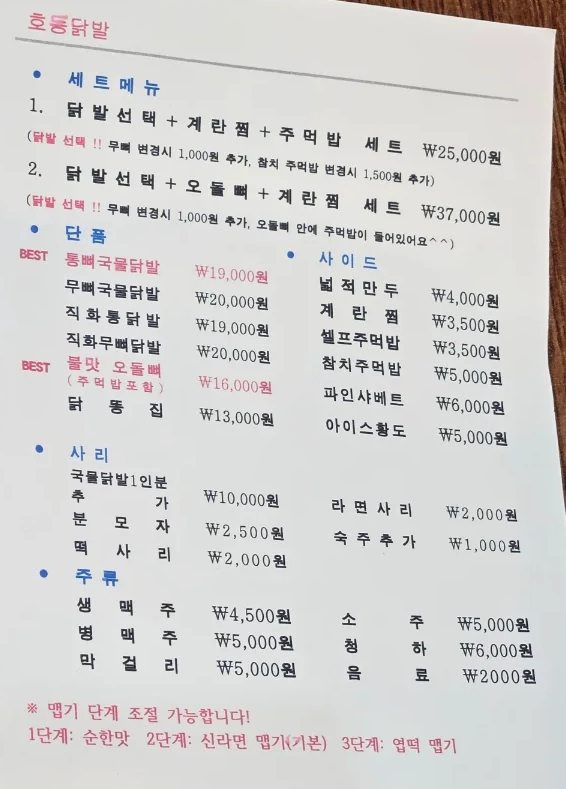 호롱닭발
• 세트메뉴
1. 닭발선택+계란찜+주먹밥 세트 ₩25,000원
(닭발 선택 !! 무뼈 변경시 1,000원 추가, 참치 주먹밥 변경시 1,500원 추가)
2. 닭발선택+오돌뼈+계란찜 세트 ₩37,000원
(닭발 선택 !! 무뼈 변경시 1,000원 추가, 오돌뼈 안에 주먹밥이 들어있어요^^)
• 단품
BEST 통뼈국물닭발 ₩19,000원
무뼈국물닭발 ₩20,000원
직화통닭발 ₩19,000원
직화무뼈닭발 ₩20,000원
BEST 불맛 오돌뼈 ₩16,000원
(주먹밥포함)
닭똥집 ₩13,000원
• 사이드
넓적만두 ₩4,000원
계란찜 ₩3,500원
셀프주먹밥 ₩3,500원
참치주먹밥 ₩5,000원
파인샤베트 ₩6,000원
아이스황도 ₩5,000원
• 사리
국물닭발1인분
추가 ₩10,000원
분모자 ₩2,500원
떡사리 ₩2,000원
라면사리 ₩2,000원
숙주추가 ₩1,000원
• 주류
생맥주 ₩4,500원
병맥주 ₩5,000원
막걸리 ₩5,000원
소주 ₩5,000원
청하 ₩6,000원
음료 ₩2000원
※ 맵기 단계 조절 가능합니다!
1단계: 순한맛 2단계: 신라면 맵기(기본) 3단계: 엽떡 맵기